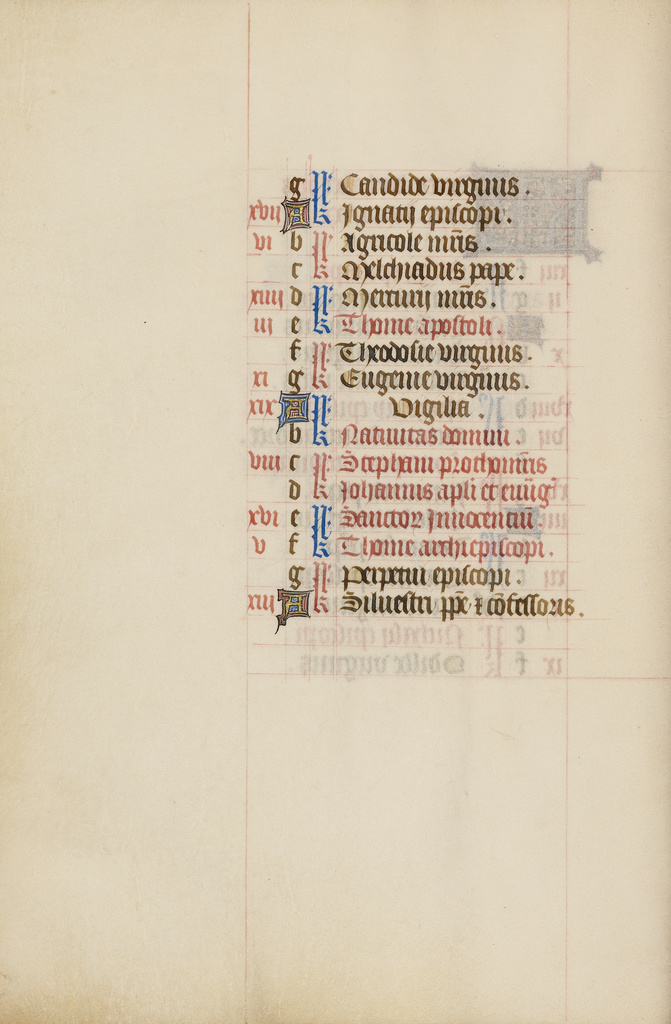 g kl Candide virginis.
xvii A kl Ignatij episcopi.
vi b kl Agricole mris.
c kl Melchiadus pape.
xiiii d kl Mercurij mris.
iii e kl Thome apostoli.
f kl Theodosie virginis.
xi g kl Eugenie virginis.
xix A kl Vigilia.
b kl Natiuitas domini.
viii c kl Stephani prothomris
d kl Johannis apli et euug
xvi e kl Sanctoꝝ Innocentiū.
v f kl Thome archiepiscopi.
g kl Perpetui episcopi.
xiii A kl Siluestri ppe ⁊ cōfessoris.